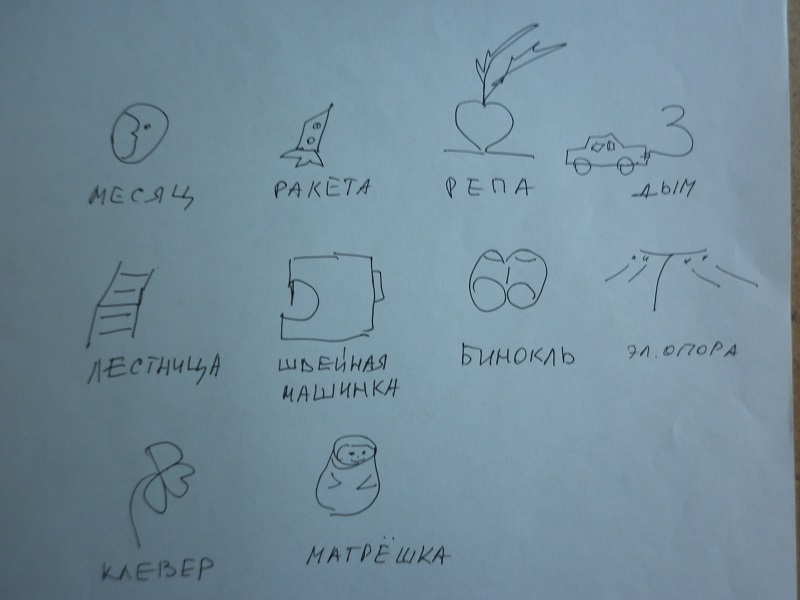 МЕСЯЦ
РАКЕТА
РЕПА
ДЫМ
ЛЕСТНИЦА
ШВЕЙНАЯ
МАШИНКА
БИНОКЛЬ
ЭЛ. ОПОРА
КЛЕВЕР
МАТРЁШКА